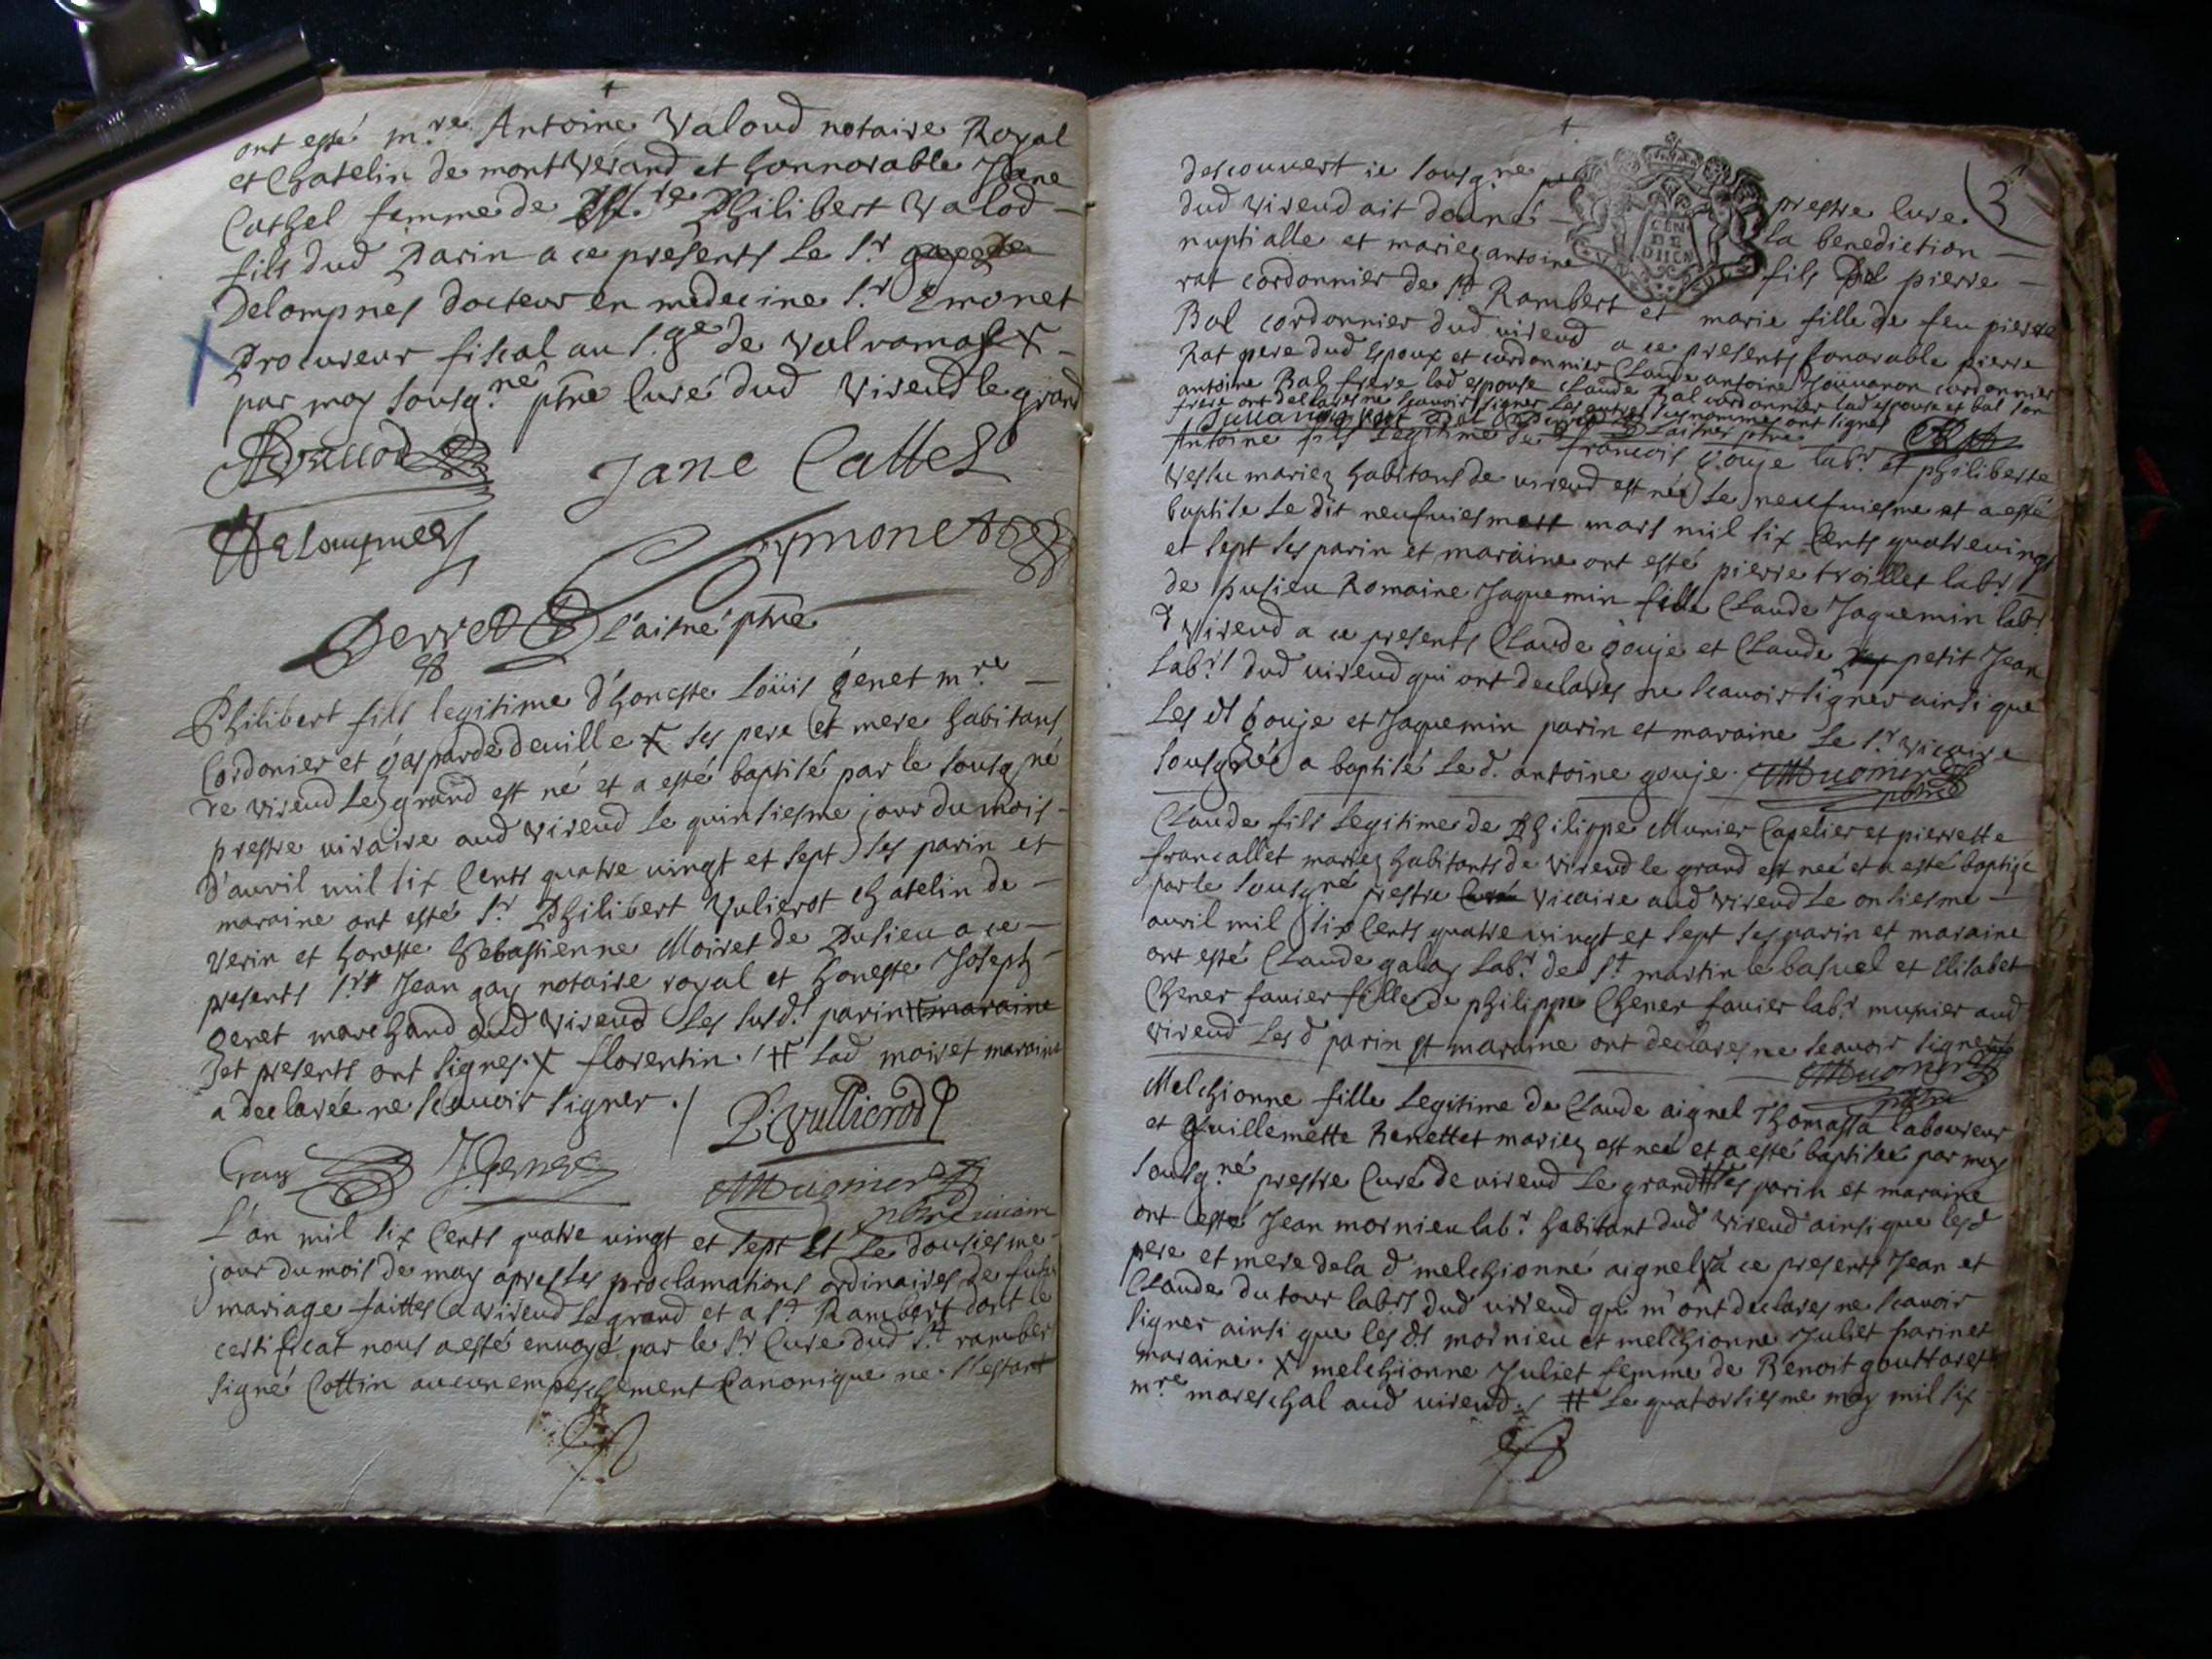 ont esté m.re Antoine Valoud notaire Royal
et Chatelin de montverand et honnorable Jane
Cathel femme de Philibert Valod
fils dud parin a ce presents le s.r
Delompnes docteur en medecine s.r Emonet
procureur fiscal au de valromay X
par moy sousg.né ptre Curé dud virieud le grand
Jane Cattel
Delompnes
Symonet
Derred L'aisné ptre
Philibert fils legitime d'honeste Loüis genet m.re
Cordonier et gasparde deville X ses pere et mere habitans
de virieud le grand est né et a esté baptisé par le sousgné
prestre vicaire aud virieud le quinsiesme jour du mois
d'avril mil six Cents quatre vingt et sept ses parin et
maraine ont esté s.r Philibert Vulierot Chatelin de
verin et honeste Sebastienne Moiret de Pusieu a ce
presents s.rs Jean gay notaire royal et honeste Joseph
genet marchand aud virieud Les susd.t parin et maraine
et presents ont signes. X florentin. / # Lad moiret maraine
a declarée ne scavoir signer. /
P. Vullierod
Gay J. Genet
Mugnier
ptre vicaire
L'an mil six Cents quatre vingt et sept et Le dousiesme
jour du mois de may apres les proclamations ordinaires de futur
mariage faittes a virieud Le grand et a S.t Rambert dont le
certificat nous a esté envoyé par le s.r Curé dud S.t rambert
signé Cottin aucun empeschement Canonique ne s'estant
3
descouvert ie sousg.né prestre Curé
dud virieud ait donné la benediction
nuptialle et mariez antoine fils de pierre
rat cordonnier de S.t Rambert et marie fille de feu pierre
Bal cordonnier dud virieud a ce presents honorable pierre
Rat pere dud Espoux et cordonnier Claude antoine Joüvanon cordonnier
antoine Bal frere lad espouse Claude Bal cordonnier lad espouse et bal son
frere ont declares ne scavoir signer Les autres susnommes ont signes
L'aisné ptre
Antoine fils Legitime de françois gouje lab.r et philiberte
vestu mariez habitans de virieud est né Le neufviesme et a esté
baptisé Le dit neufviesme mars mil six Cents quatrevingt
et sept ses parin et maraine ont esté pierre troillet lab.r
de pusieu Romaine Jaquemin fille Claude Jaquemin lab.r
d virieud a ce presents Claude gouje et Claude petit Jean
Lab.rs dud virieud qui ont declares ne scavoir signer ainsi que
Les dt gouje et Jaquemin parin et maraine Le s.r vicaire
sousgné a baptisé Le d. antoine gouje. Mugnier
ptre
Claude fils Legitime de Philippe Munier Capelier et pierrette
francallet mariez habitants de virieud le grand est né et a esté baptisé
par le sousgné prestre Curé vicaire aud virieud Le onsiesme
avril mil six Cents quatre vingt et sept ses parin et maraine
ont esté Claude galay Lab.r de S.t martin le basuel et Elisabet
Chener favier fille de philippe Chener favier lab.r munier aud
virieud Les d parin et maraine ont declares ne scavoir signer
Mugnier
ptre
Melchionne fille Legitime de Claude aignel Thomassa laboureur
et Guillemette Renettet mariez est neé et a esté baptiseé par moy
sousg.né prestre Curé de virieud Le grand # ses parin et maraine
ont esté Jean mornieu lab.r habitant dud virieud ainsi que lesd
pere et mere de la d melchionne aignel X a ce presents Jean et
Claude dutour lab.rs dud virieud qui m'ont declares ne scavoir
signer ainsi que les dt mornieu et melchionne Juliet parin et
maraine. X melchionne Juliet femme de Benoit gouttaret
m.re mareschal aud virieud. / # Le quatorsiesme may mil six